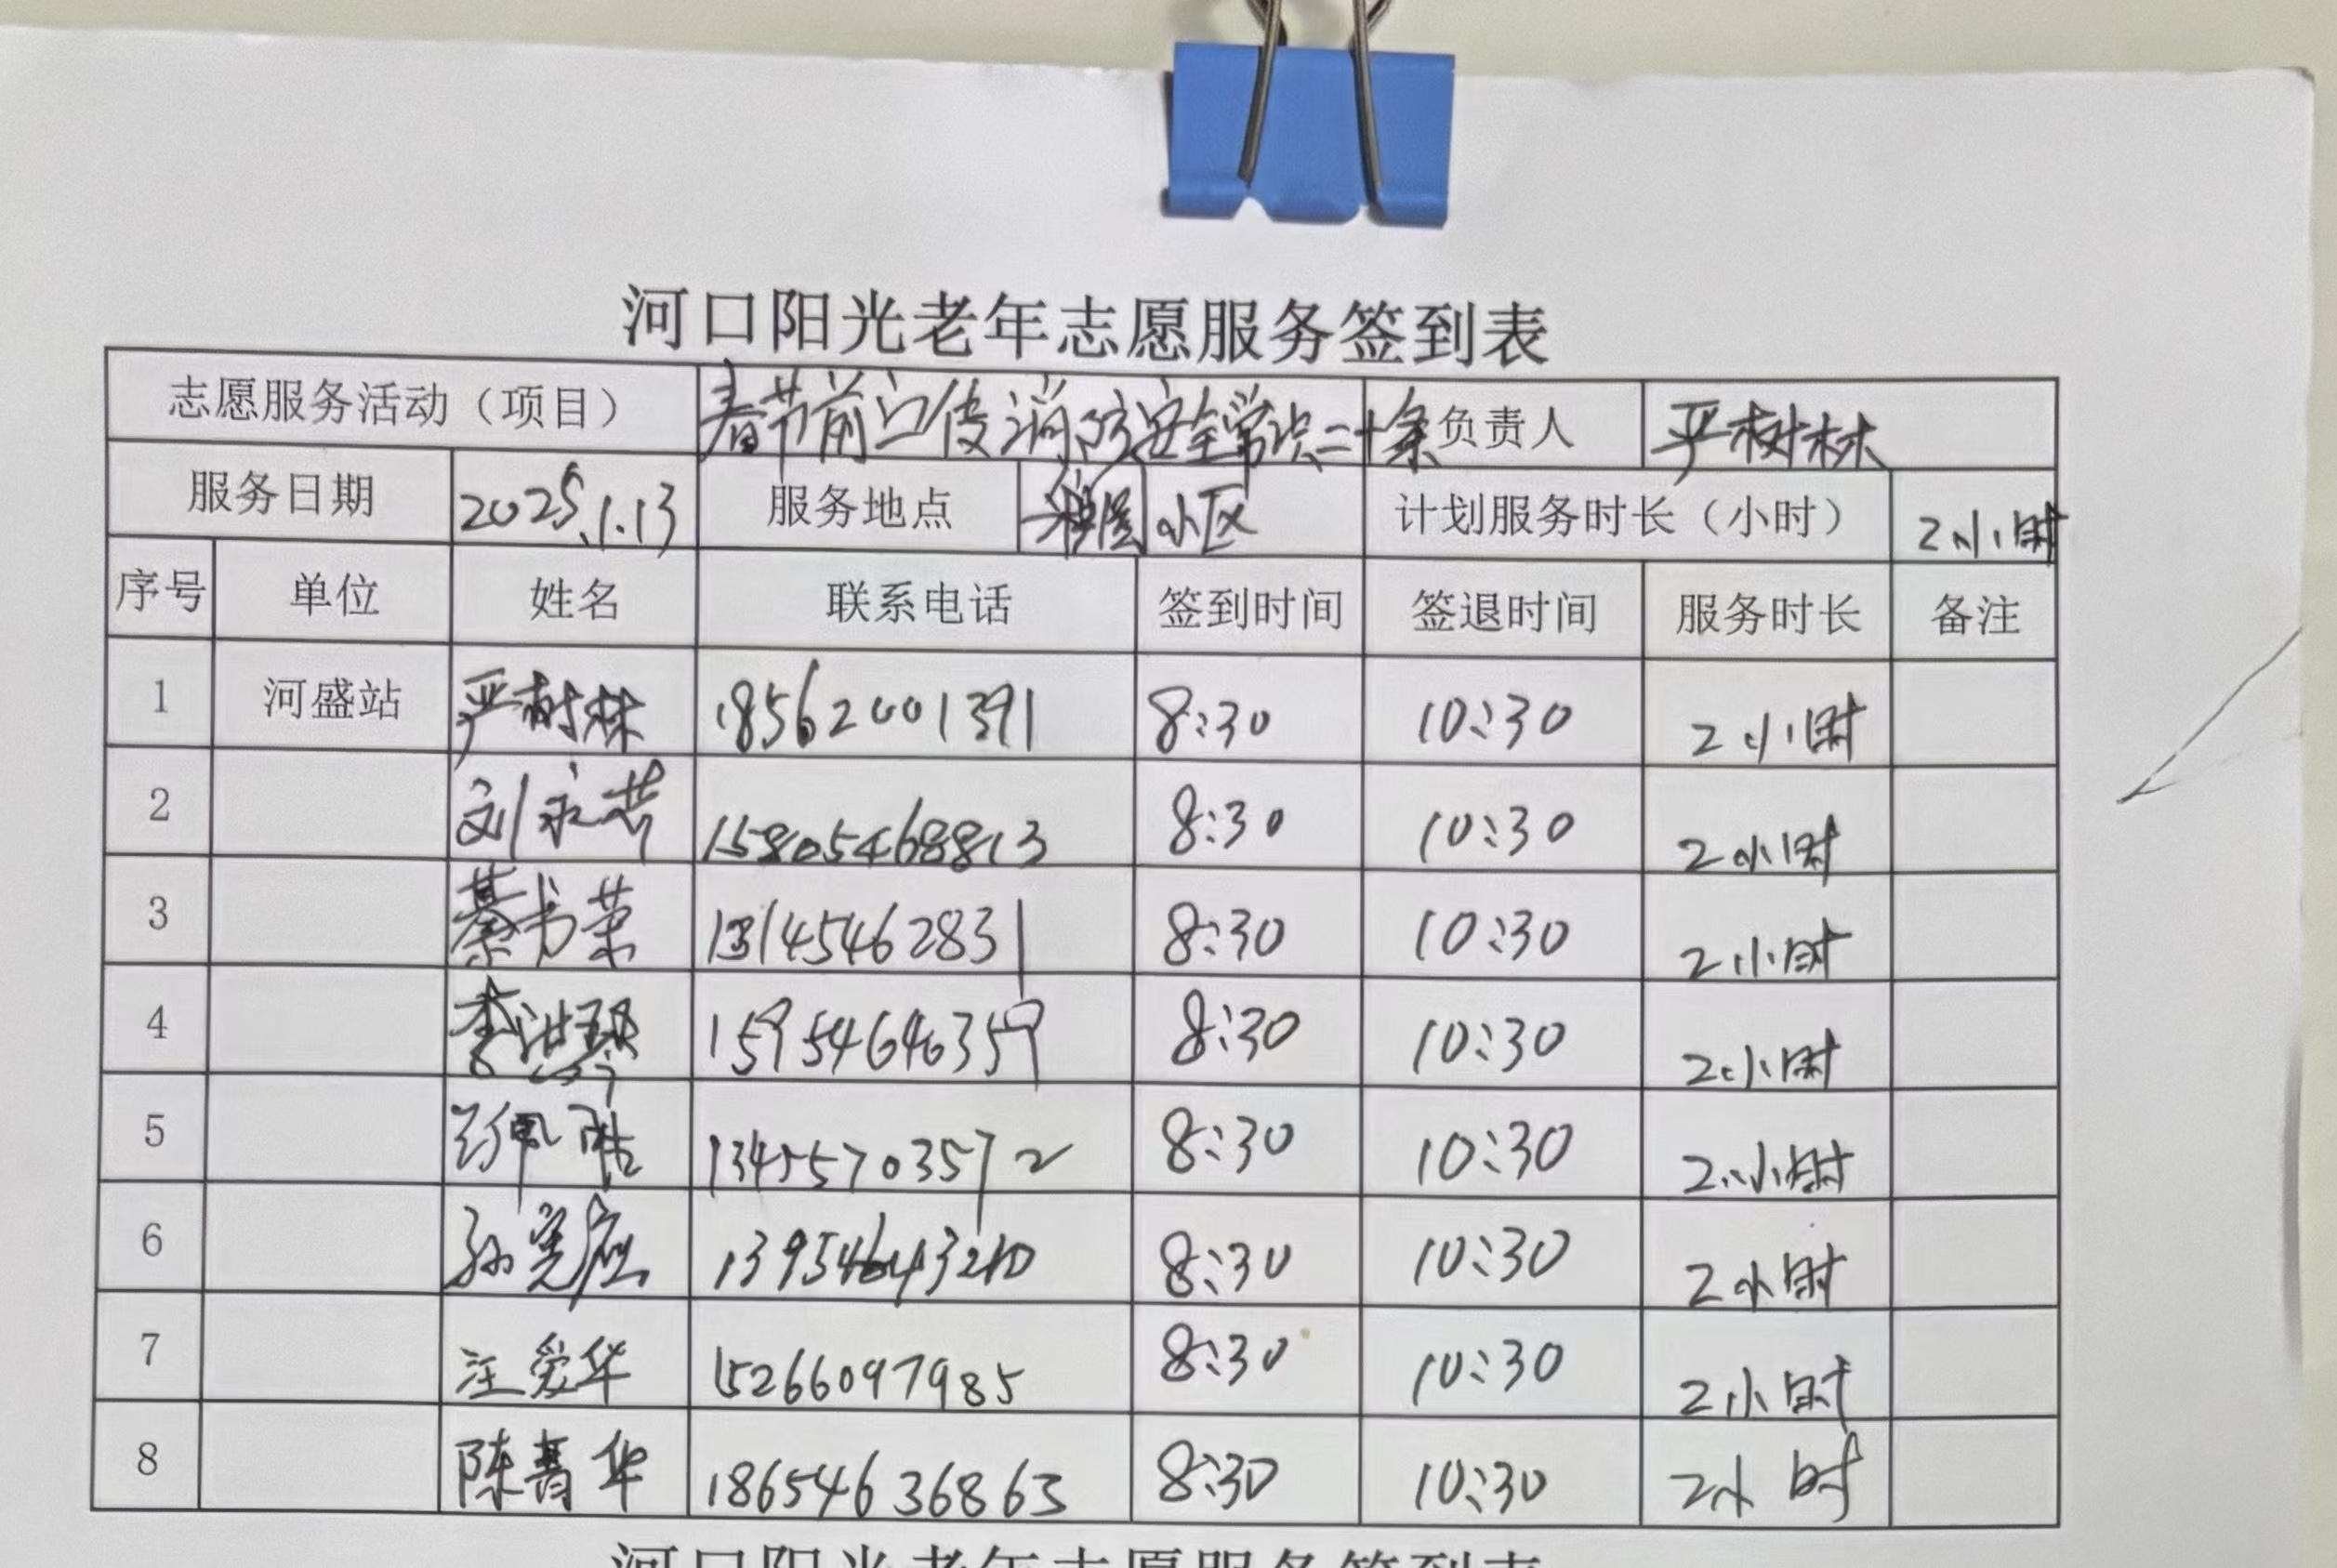 河口阳光老年志愿服务签到表
志愿服务活动（项目） 春节前宣传消防安全常识二十条 负责人 严树林
服务日期 2025.1.13 服务地点 小区 计划服务时长（小时） 2小时
序号 单位 姓名 联系电话 签到时间 签退时间 服务时长 备注
1 河盛站 严树林 18562001391 8:30 10:30 2小时
2 刘永芳 15805468813 8:30 10:30 2小时
3 綦书荣 13145462831 8:30 10:30 2小时
4 李 15954646359 8:30 10:30 2小时
5 13455703572 8:30 10:30 2小时
6 孙宪应 8:30 10:30 2小时
7 汪爱华 15266097985 8:30 10:30 2小时
8 陈菁华 18654636863 8:30 10:30 2小时
河口阳光老年志愿服务签到表